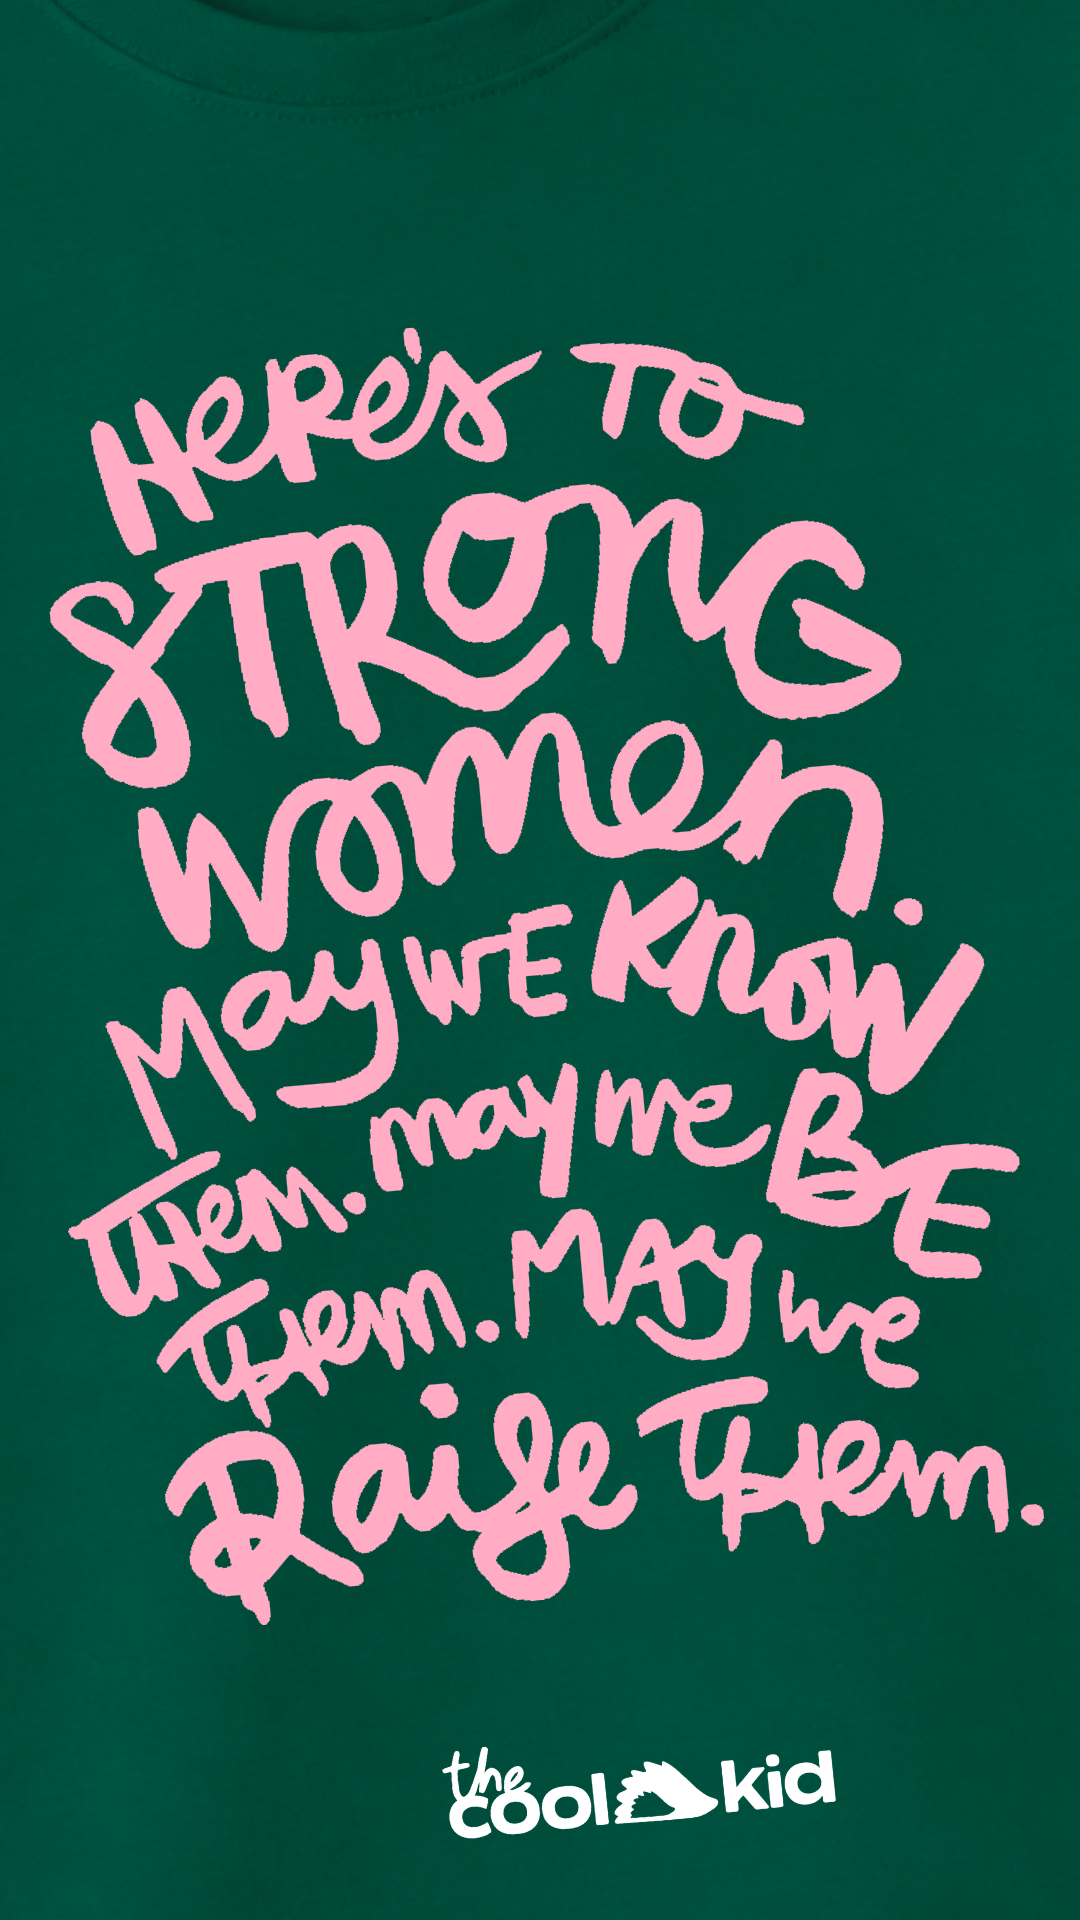 Here's To
STRONG
women.
May WE Know
Them. may we BE
Them. MAY we
Raise Them.
the
cool kid